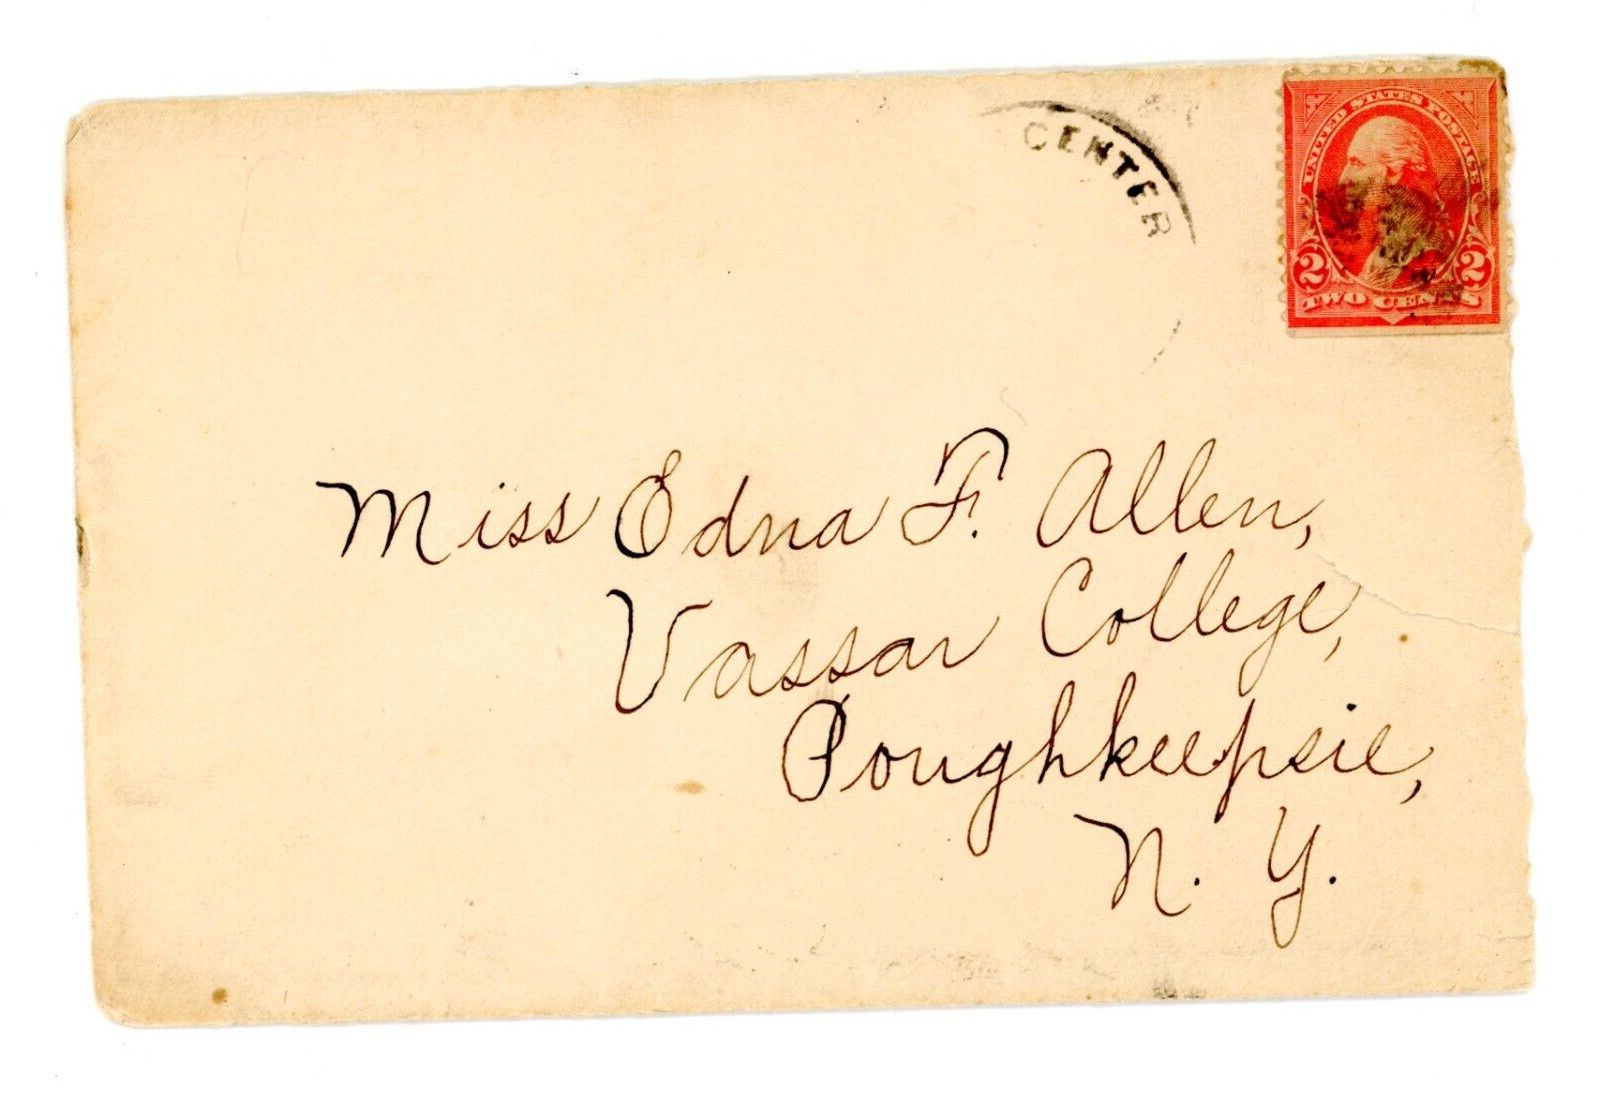 CENTER
UNITED STATES POSTAGE
2 2
TWO CENTS
Miss Edna F. Allen,
Vassar College,
Poughkeepsie,
N. Y.